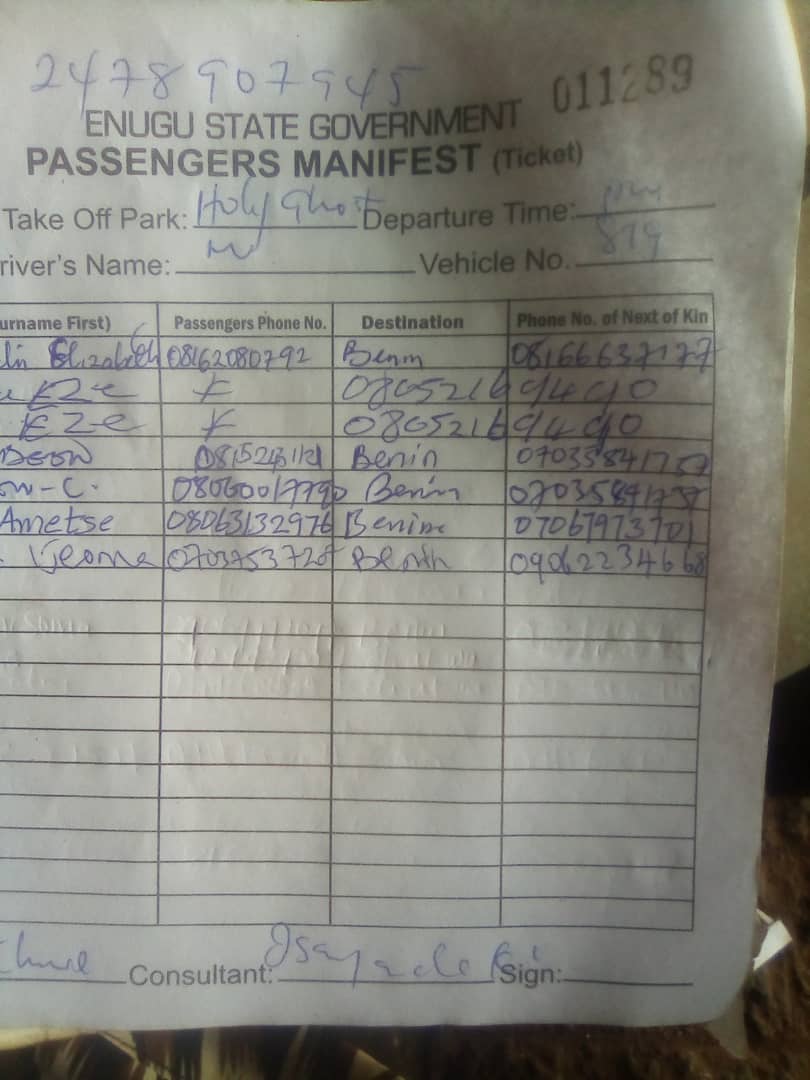 2478907945
011289
ENUGU STATE GOVERNMENT
PASSENGERS MANIFEST (Ticket)
Take Off Park: Holy Ghost Departure Time:
river's Name: Vehicle No. 819
urname First) Passengers Phone No. Destination Phone No. of Next of Kin
Elizabeth 08162080792 Benin 08166637177
Eze 08052169490
Eze 08052169490
Benin
08060017790 Benin
Ametse 08063132976 Benin 07067973701
Ijeoma Benin 09062234668
Consultant: Sign: